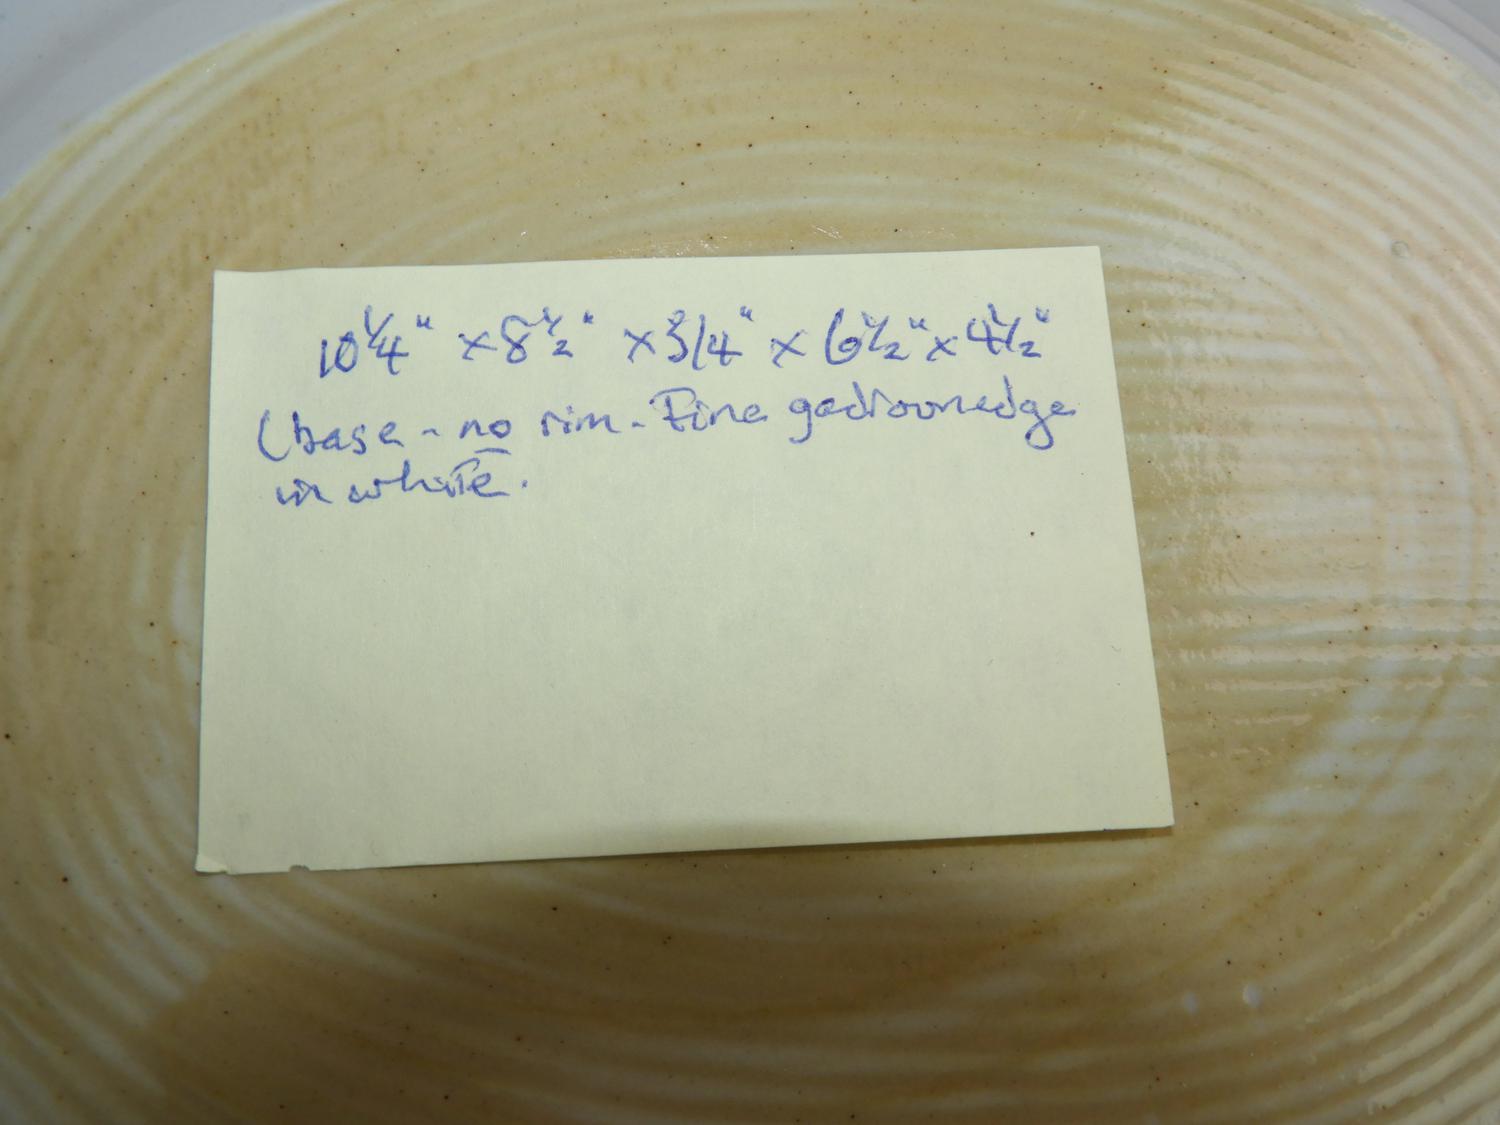 10 1/4" x 8 1/2" x 3/4" x 6 1/2" x 4 1/2"
(base - no rim - Fine gadroonedge
in white.